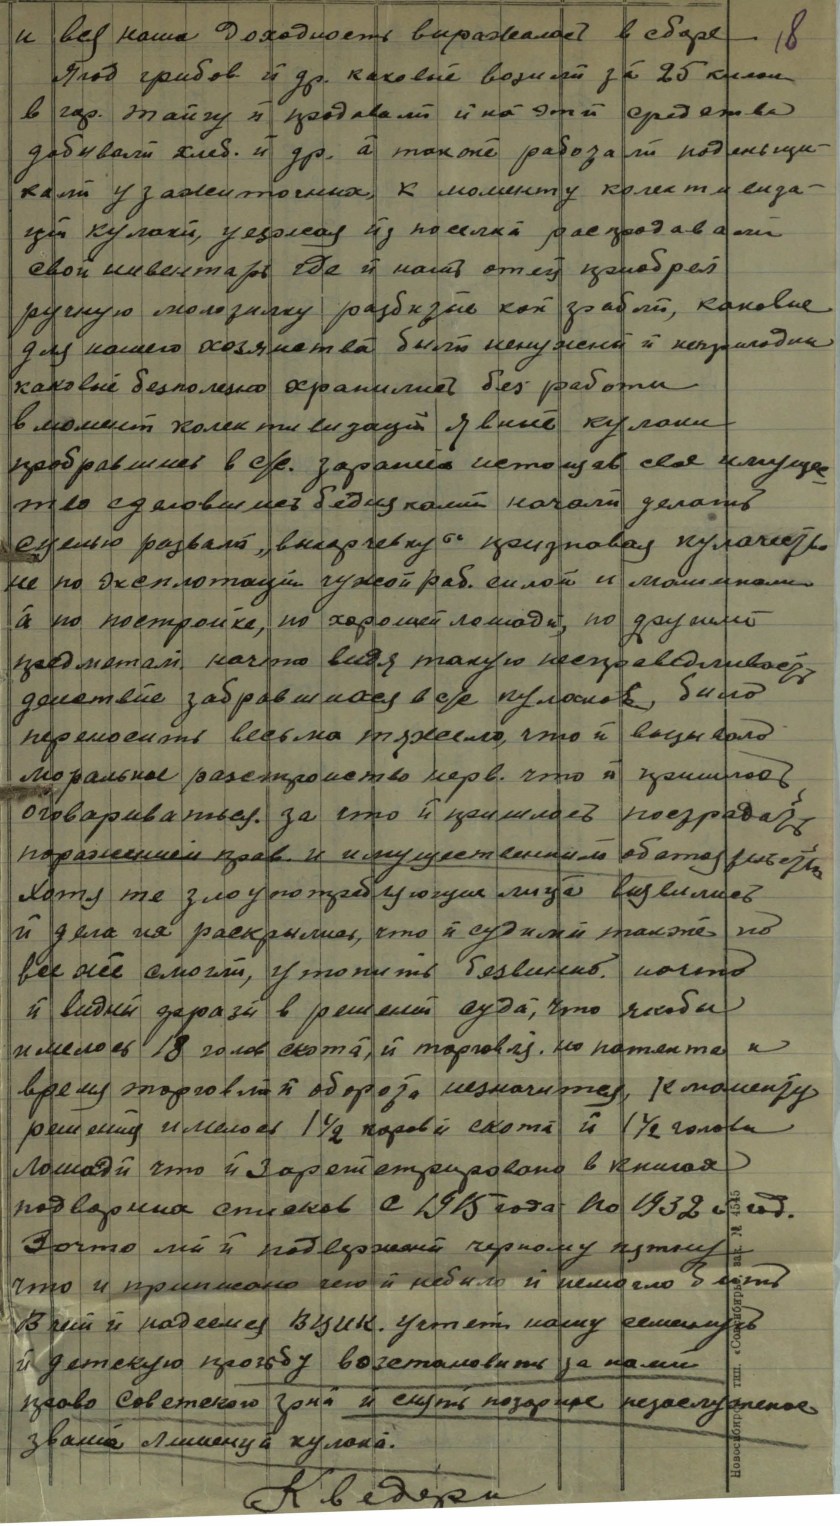 и вся наша доходность выражалось в сборе
18
Ягод грибов и др. каковые возили за 25 килом
в гор. Тайгу и продавали и на эти средства
добывали хлеб. и др. а также работали поденьщи-
ками у зажиточных, к моменту колективиза-
ции кулаки, уезжая из поселка распродавали
свой инвентарь где и нашь отец приобрел
ручную молотилку разбитые кон грабли, каковые
для нашего хозяйства были ненужный и непригодны
каковые безполезно хранились без работы
в момент колективизаций явные кулаки
пробравшись в с/с. заранее истощав свое имуще-
тво сделовшись бедняками начали делать
сцелью развали, „выкорчевку“ признавая кулачество
не по эксплотаций чужой раб. силой и машинами
а по постройке, по хорошей лошади, по другим
предметам. начто видя такую несправедливость
действие забравшихся в с/с кулаков, было
переносить весьма тяжело, что и вызывало
моральное разстройство нерв. что и пришлось
оговариваться. за что и пришлось пострадать
поражением прав. и имущественным обстоятельством
Хотя те злоупотребляющие лица выявились
и дела их раскрылись, что и судили также но
все же смогли, утопить безвинно. начто
и видны заразы в решений суда, что якобы
имелось 18 голов скота, и торговля. но патента и
время торговли и оборота незначится, К моменту
решения имелось 1 1/2 коровы скота и 1 1/2 головы
Лошади что и зарегистрировано в книгах
подворных списков с 1915 года по 1932 й год.
Зачто мы и подвержены черному пятну
что и приписано чего и небыло и немогло быть
В чем и надеемся ВЦИК. учтет нашу семейную
и детскую прозьбу возстановить за нами
право Советского гр-на и снять позорное незаслуженое
звание Лишенца кулака.
Кведери
Новосибирск тип. «Совсибирь» зак. № 4545